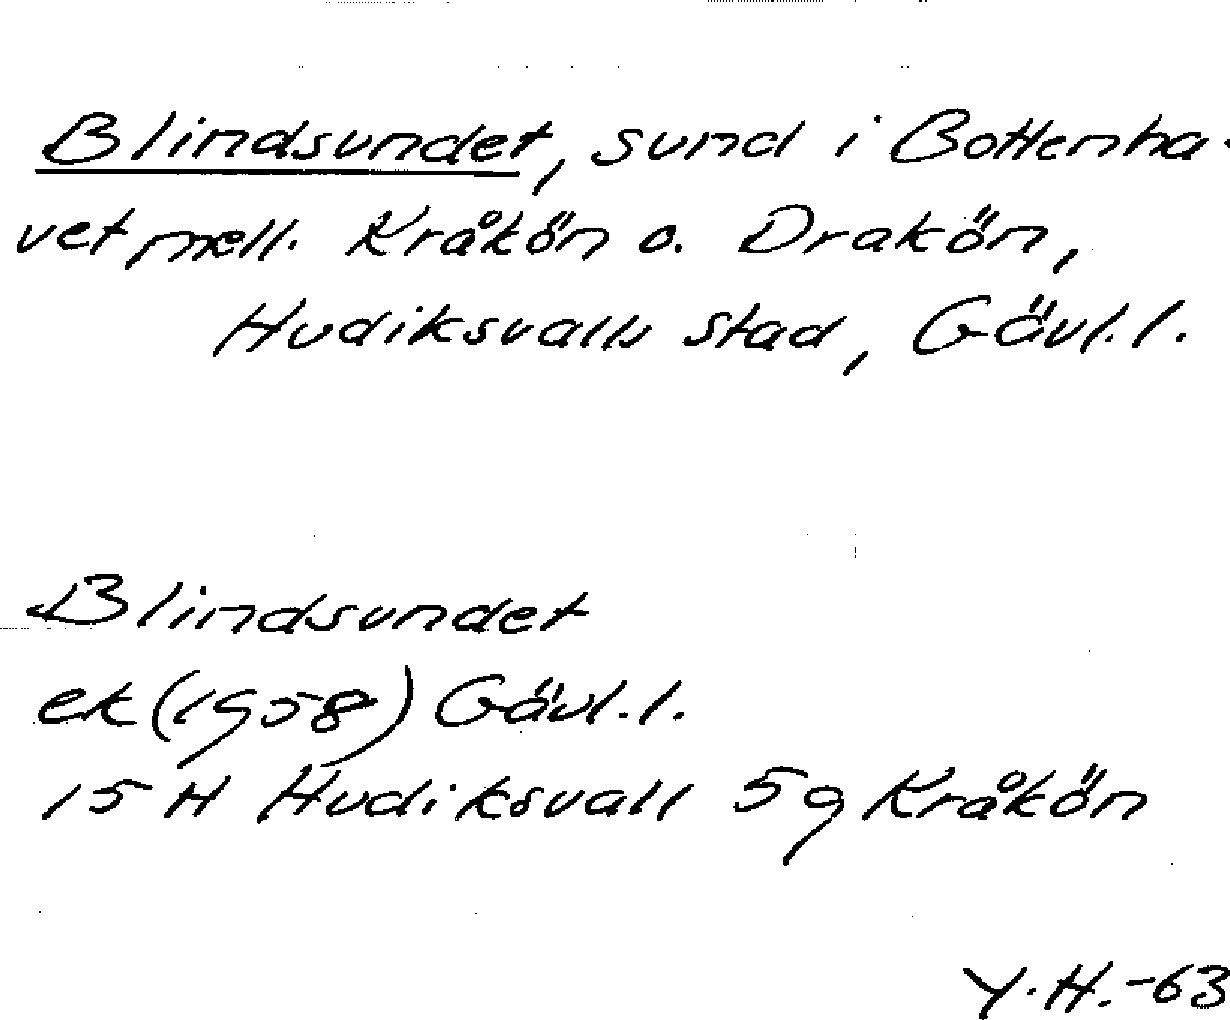 Blindsundet, sund i Bottenha-
vet mell. Kråkön o. Drakön,
Hudiksvalls stad, Gävl. l.
Blindsundet
ek (1958) Gävl. l.
15 H Hudiksvall 5 g Kråkön
Y. H. -63